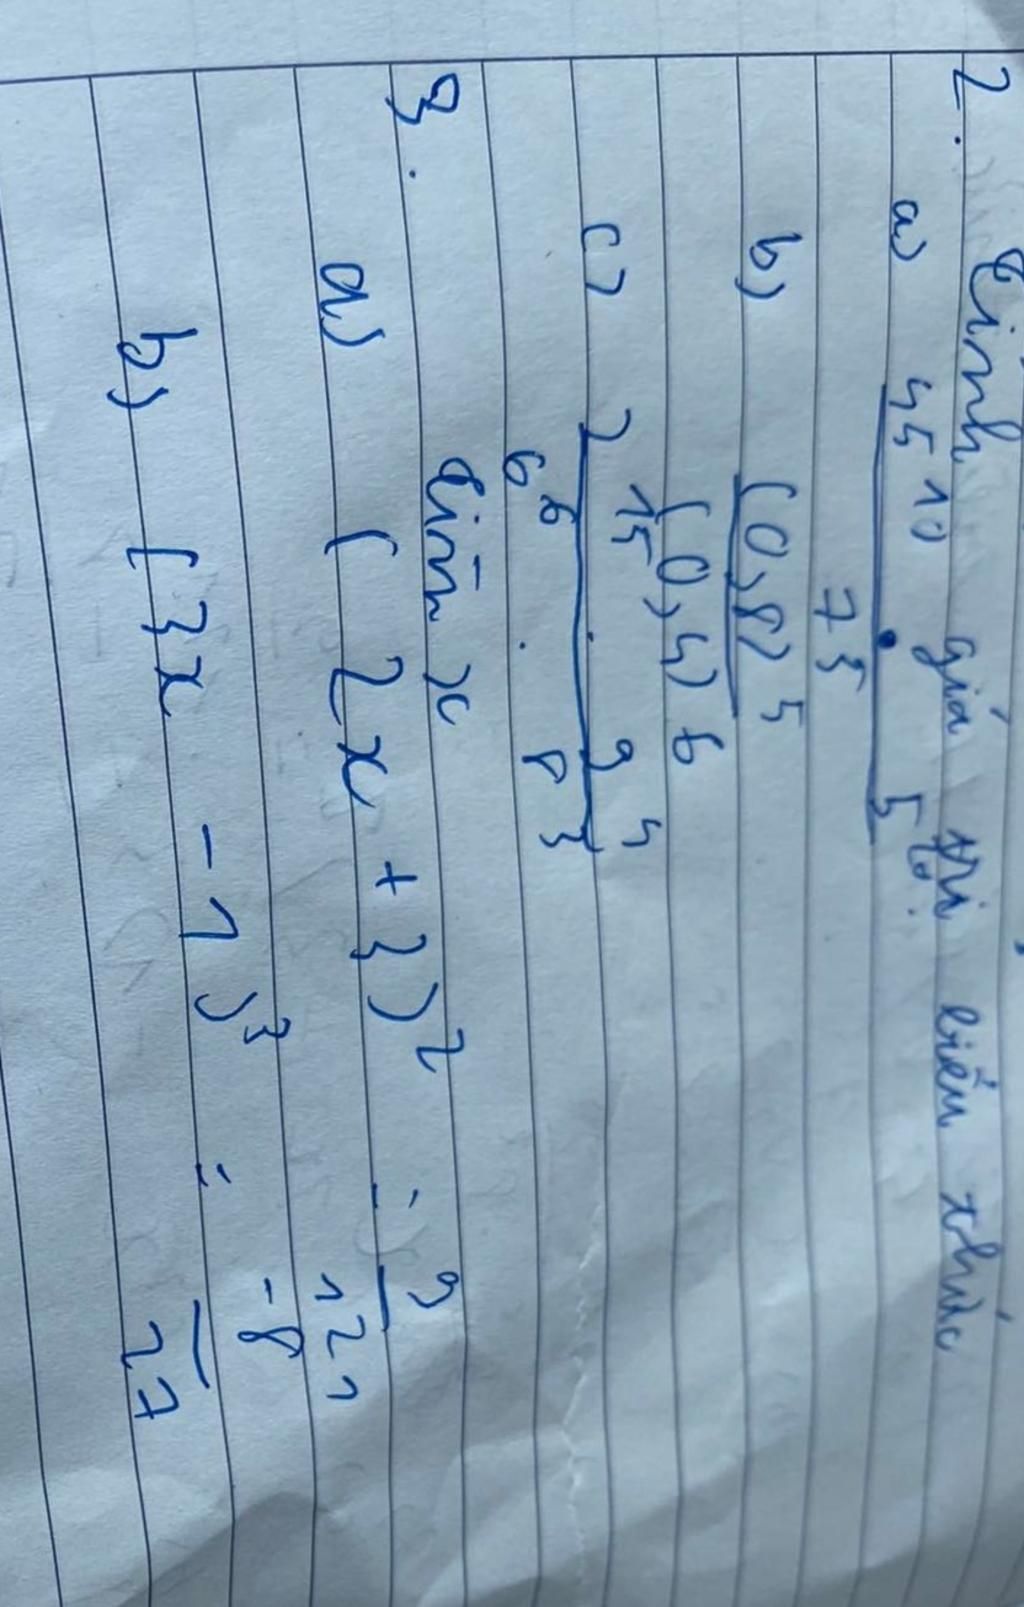 2. Tính giá trị biểu thức
a) 45^10 . 5^20
75^15
b) (0,8)^5
(0,4)^6
c) 2^15 . 9^4
6^6 . 8^3
3. Tìm x
a) (2x + 3)^2 = 9
121
b) (3x - 1)^3 = -8
27